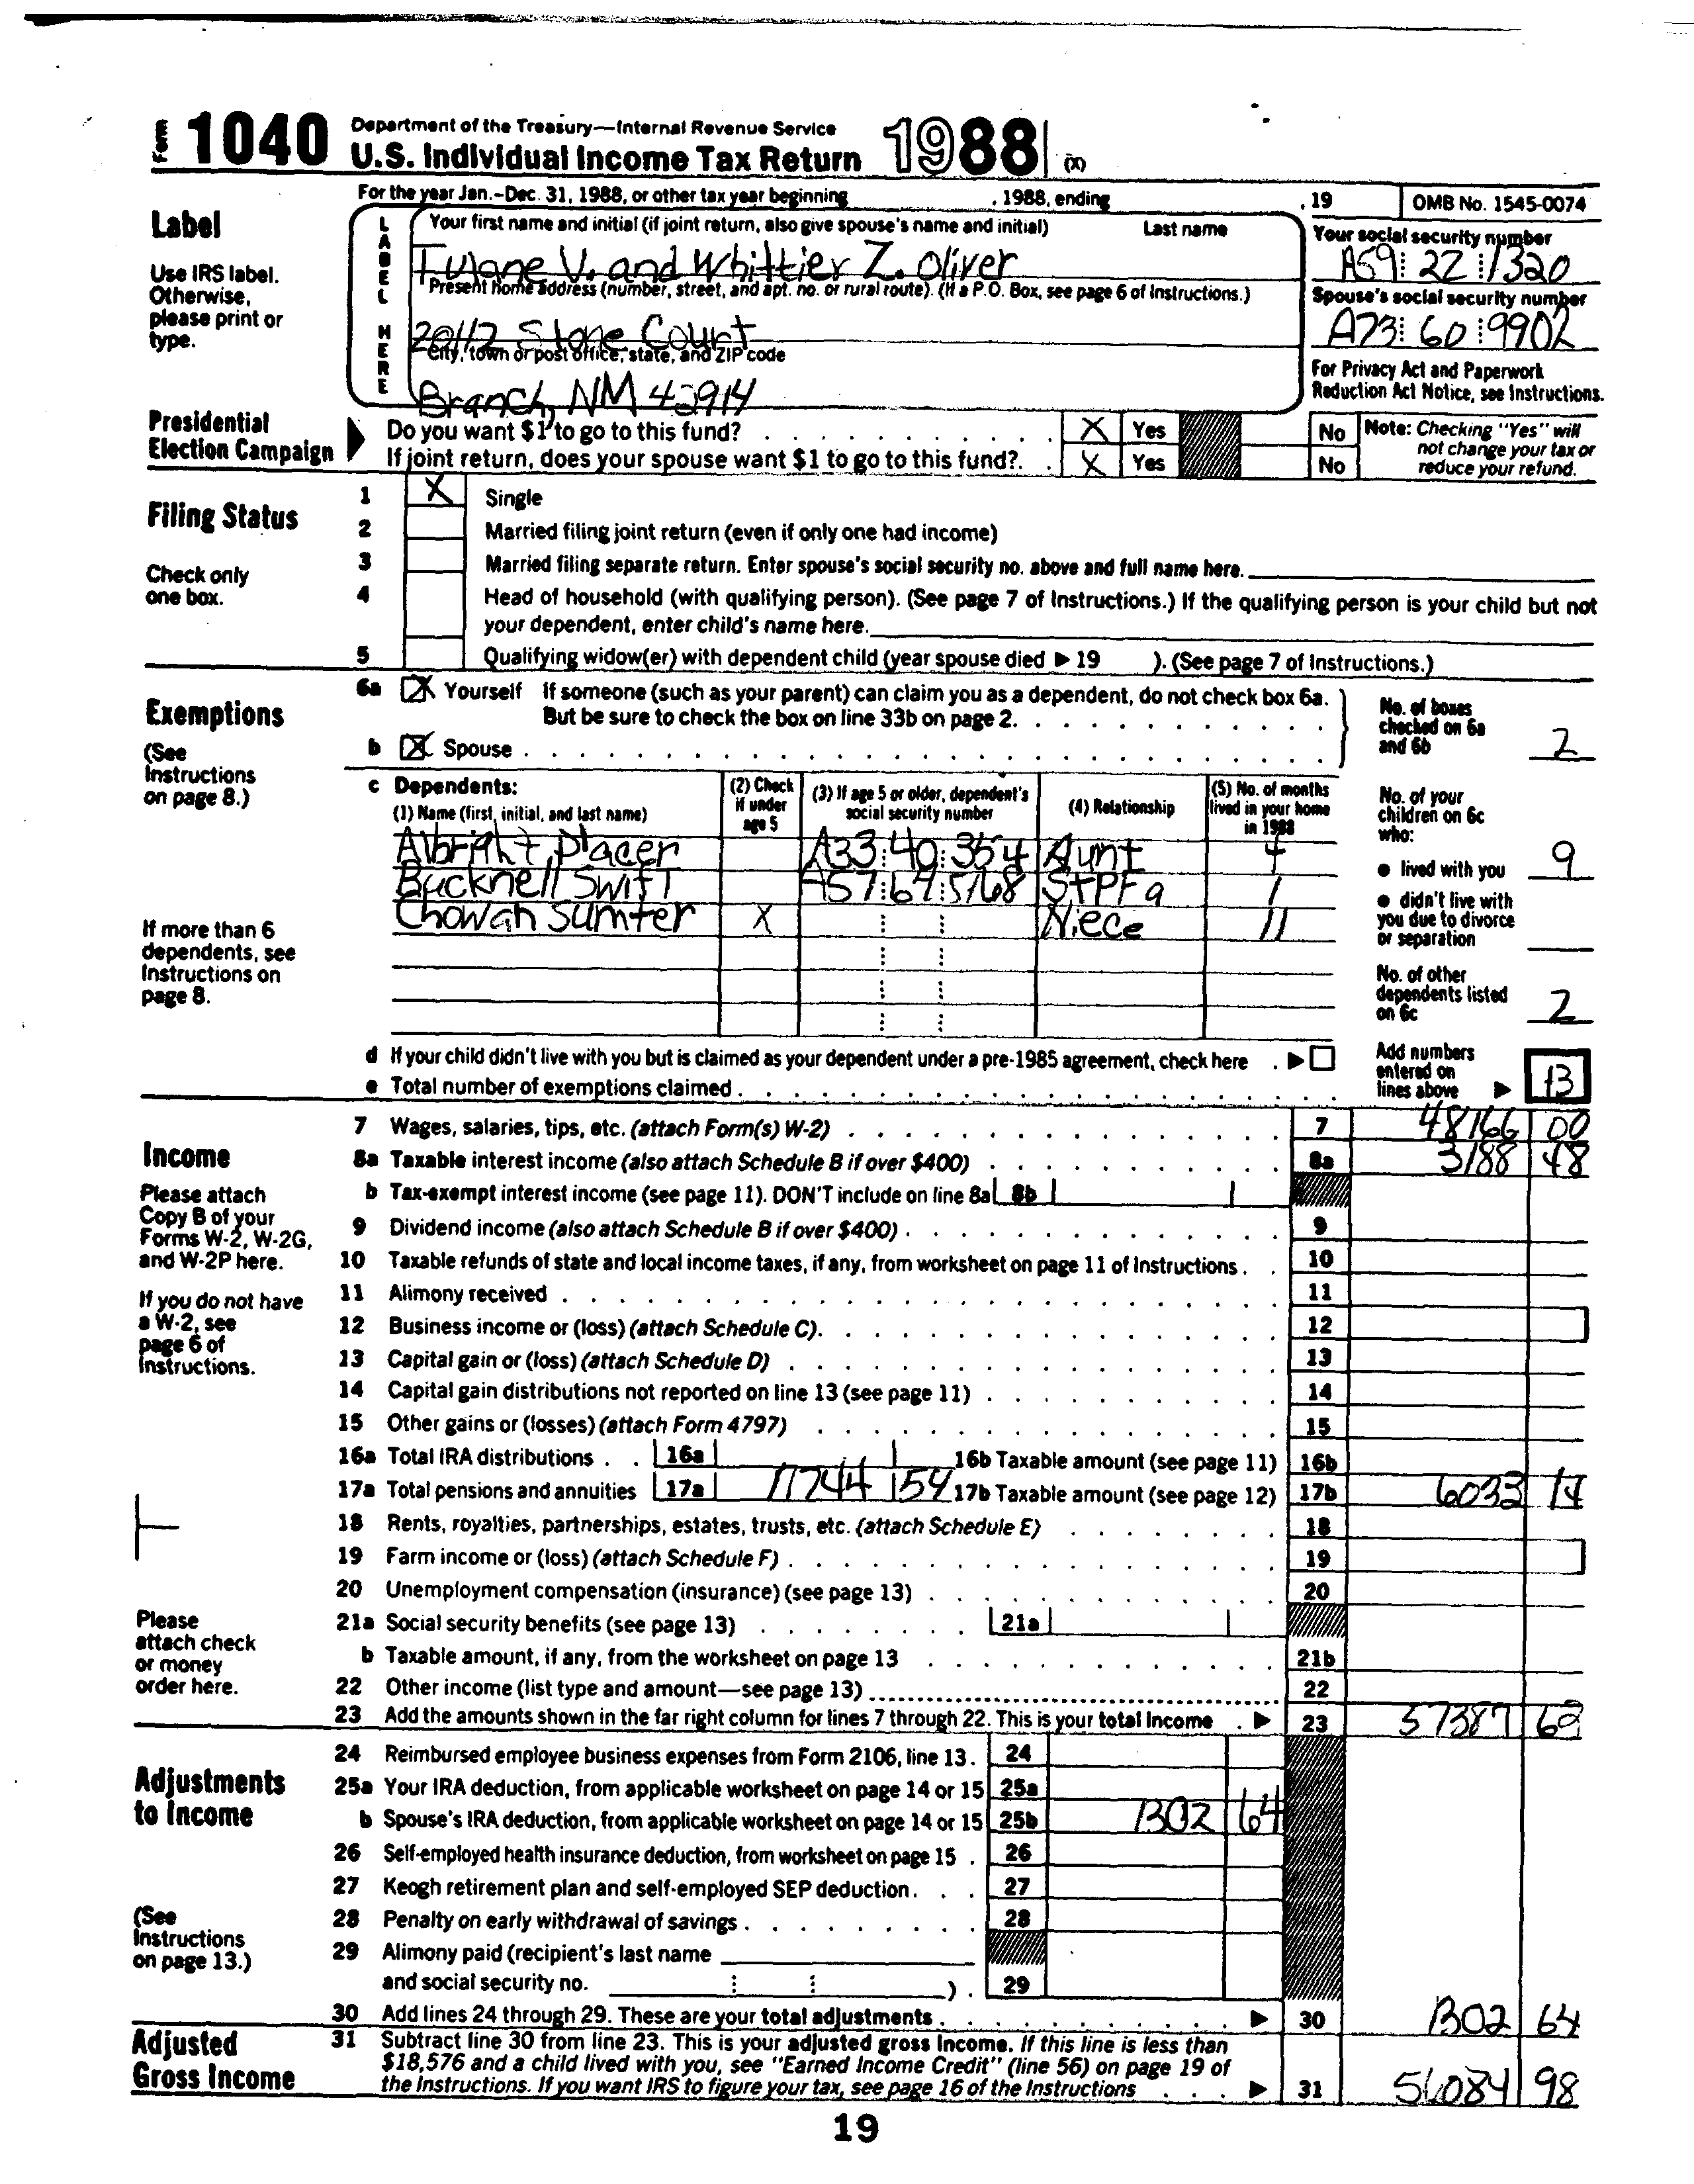 Form 1040 Department of the Treasury—Internal Revenue Service
U.S. Individual Income Tax Return 1988 (X)
For the year Jan.-Dec. 31, 1988, or other tax year beginning , 1988, ending , 19 OMB No. 1545-0074
Label
Use IRS label.
Otherwise,
please print or
type.
LABEL HERE
Your first name and initial (if joint return, also give spouse's name and initial) Last name
Tulane V. and Whittier Z. Oliver
Present home address (number, street, and apt. no. or rural route). (If a P.O. Box, see page 6 of Instructions.)
Stone Court
City, town or post office, state, and ZIP code
Branch, NM
Your social security number
A59 22 1320
Spouse's social security number
A73 60 9902
For Privacy Act and Paperwork
Reduction Act Notice, see Instructions.
Presidential
Election Campaign
Do you want $1 to go to this fund? X Yes No
If joint return, does your spouse want $1 to go to this fund? X Yes No
Note: Checking "Yes" will
not change your tax or
reduce your refund.
Filing Status
Check only
one box.
1 X Single
2 Married filing joint return (even if only one had income)
3 Married filing separate return. Enter spouse's social security no. above and full name here.
4 Head of household (with qualifying person). (See page 7 of Instructions.) If the qualifying person is your child but not
your dependent, enter child's name here.
5 Qualifying widow(er) with dependent child (year spouse died ▶ 19 ). (See page 7 of Instructions.)
Exemptions
(See
Instructions
on page 8.)
If more than 6
dependents, see
Instructions on
page 8.
6a X Yourself If someone (such as your parent) can claim you as a dependent, do not check box 6a.
But be sure to check the box on line 33b on page 2.
b X Spouse
No. of boxes
checked on 6a
and 6b 2
c Dependents:
(1) Name (first, initial, and last name)
(2) Check
if under
age 5
(3) If age 5 or older, dependent's
social security number
(4) Relationship
(5) No. of months
lived in your home
in 1988
Albright Placer A33 40 354 Aunt 4
Bucknell Swift A57 67 5168 StPFa 1
Chowan Sumter X Niece 11
No. of your
children on 6c
who:
● lived with you 9
● didn't live with
you due to divorce
or separation
No. of other
dependents listed
on 6c 2
d If your child didn't live with you but is claimed as your dependent under a pre-1985 agreement, check here ▶
e Total number of exemptions claimed
Add numbers
entered on
lines above ▶ 13
Income
Please attach
Copy B of your
Forms W-2, W-2G,
and W-2P here.
If you do not have
a W-2, see
page 6 of
Instructions.
Please
attach check
or money
order here.
7 Wages, salaries, tips, etc. (attach Form(s) W-2) 7 48166 00
8a Taxable interest income (also attach Schedule B if over $400) 8a 3188 48
b Tax-exempt interest income (see page 11). DON'T include on line 8a 8b
9 Dividend income (also attach Schedule B if over $400) 9
10 Taxable refunds of state and local income taxes, if any, from worksheet on page 11 of Instructions 10
11 Alimony received 11
12 Business income or (loss) (attach Schedule C) 12
13 Capital gain or (loss) (attach Schedule D) 13
14 Capital gain distributions not reported on line 13 (see page 11) 14
15 Other gains or (losses) (attach Form 4797) 15
16a Total IRA distributions 16a 16b Taxable amount (see page 11) 16b
17a Total pensions and annuities 17a 11744 54 17b Taxable amount (see page 12) 17b 6033 14
18 Rents, royalties, partnerships, estates, trusts, etc. (attach Schedule E) 18
19 Farm income or (loss) (attach Schedule F) 19
20 Unemployment compensation (insurance) (see page 13) 20
21a Social security benefits (see page 13) 21a
b Taxable amount, if any, from the worksheet on page 13 21b
22 Other income (list type and amount—see page 13) 22
23 Add the amounts shown in the far right column for lines 7 through 22. This is your total income ▶ 23 57387 62
Adjustments
to Income
(See
Instructions
on page 13.)
24 Reimbursed employee business expenses from Form 2106, line 13 24
25a Your IRA deduction, from applicable worksheet on page 14 or 15 25a
b Spouse's IRA deduction, from applicable worksheet on page 14 or 15 25b 1302 64
26 Self-employed health insurance deduction, from worksheet on page 15 26
27 Keogh retirement plan and self-employed SEP deduction 27
28 Penalty on early withdrawal of savings 28
29 Alimony paid (recipient's last name
and social security no. ) 29
30 Add lines 24 through 29. These are your total adjustments ▶ 30 1302 64
Adjusted
Gross Income
31 Subtract line 30 from line 23. This is your adjusted gross income. If this line is less than
$18,576 and a child lived with you, see "Earned Income Credit" (line 56) on page 19 of
the Instructions. If you want IRS to figure your tax, see page 16 of the Instructions ▶ 31 56084 98
19